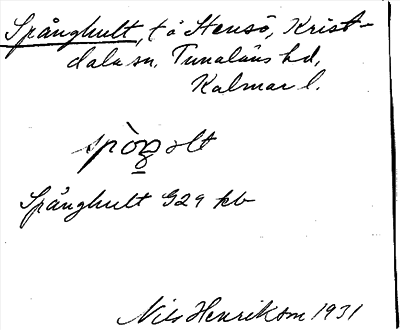 Spånghult, t å Stensö, Krist-
dala sn, Tunaläns hd,
Kalmar l.
spòŋolt
Spånghult G29 kb
Nils Henrikson 1931